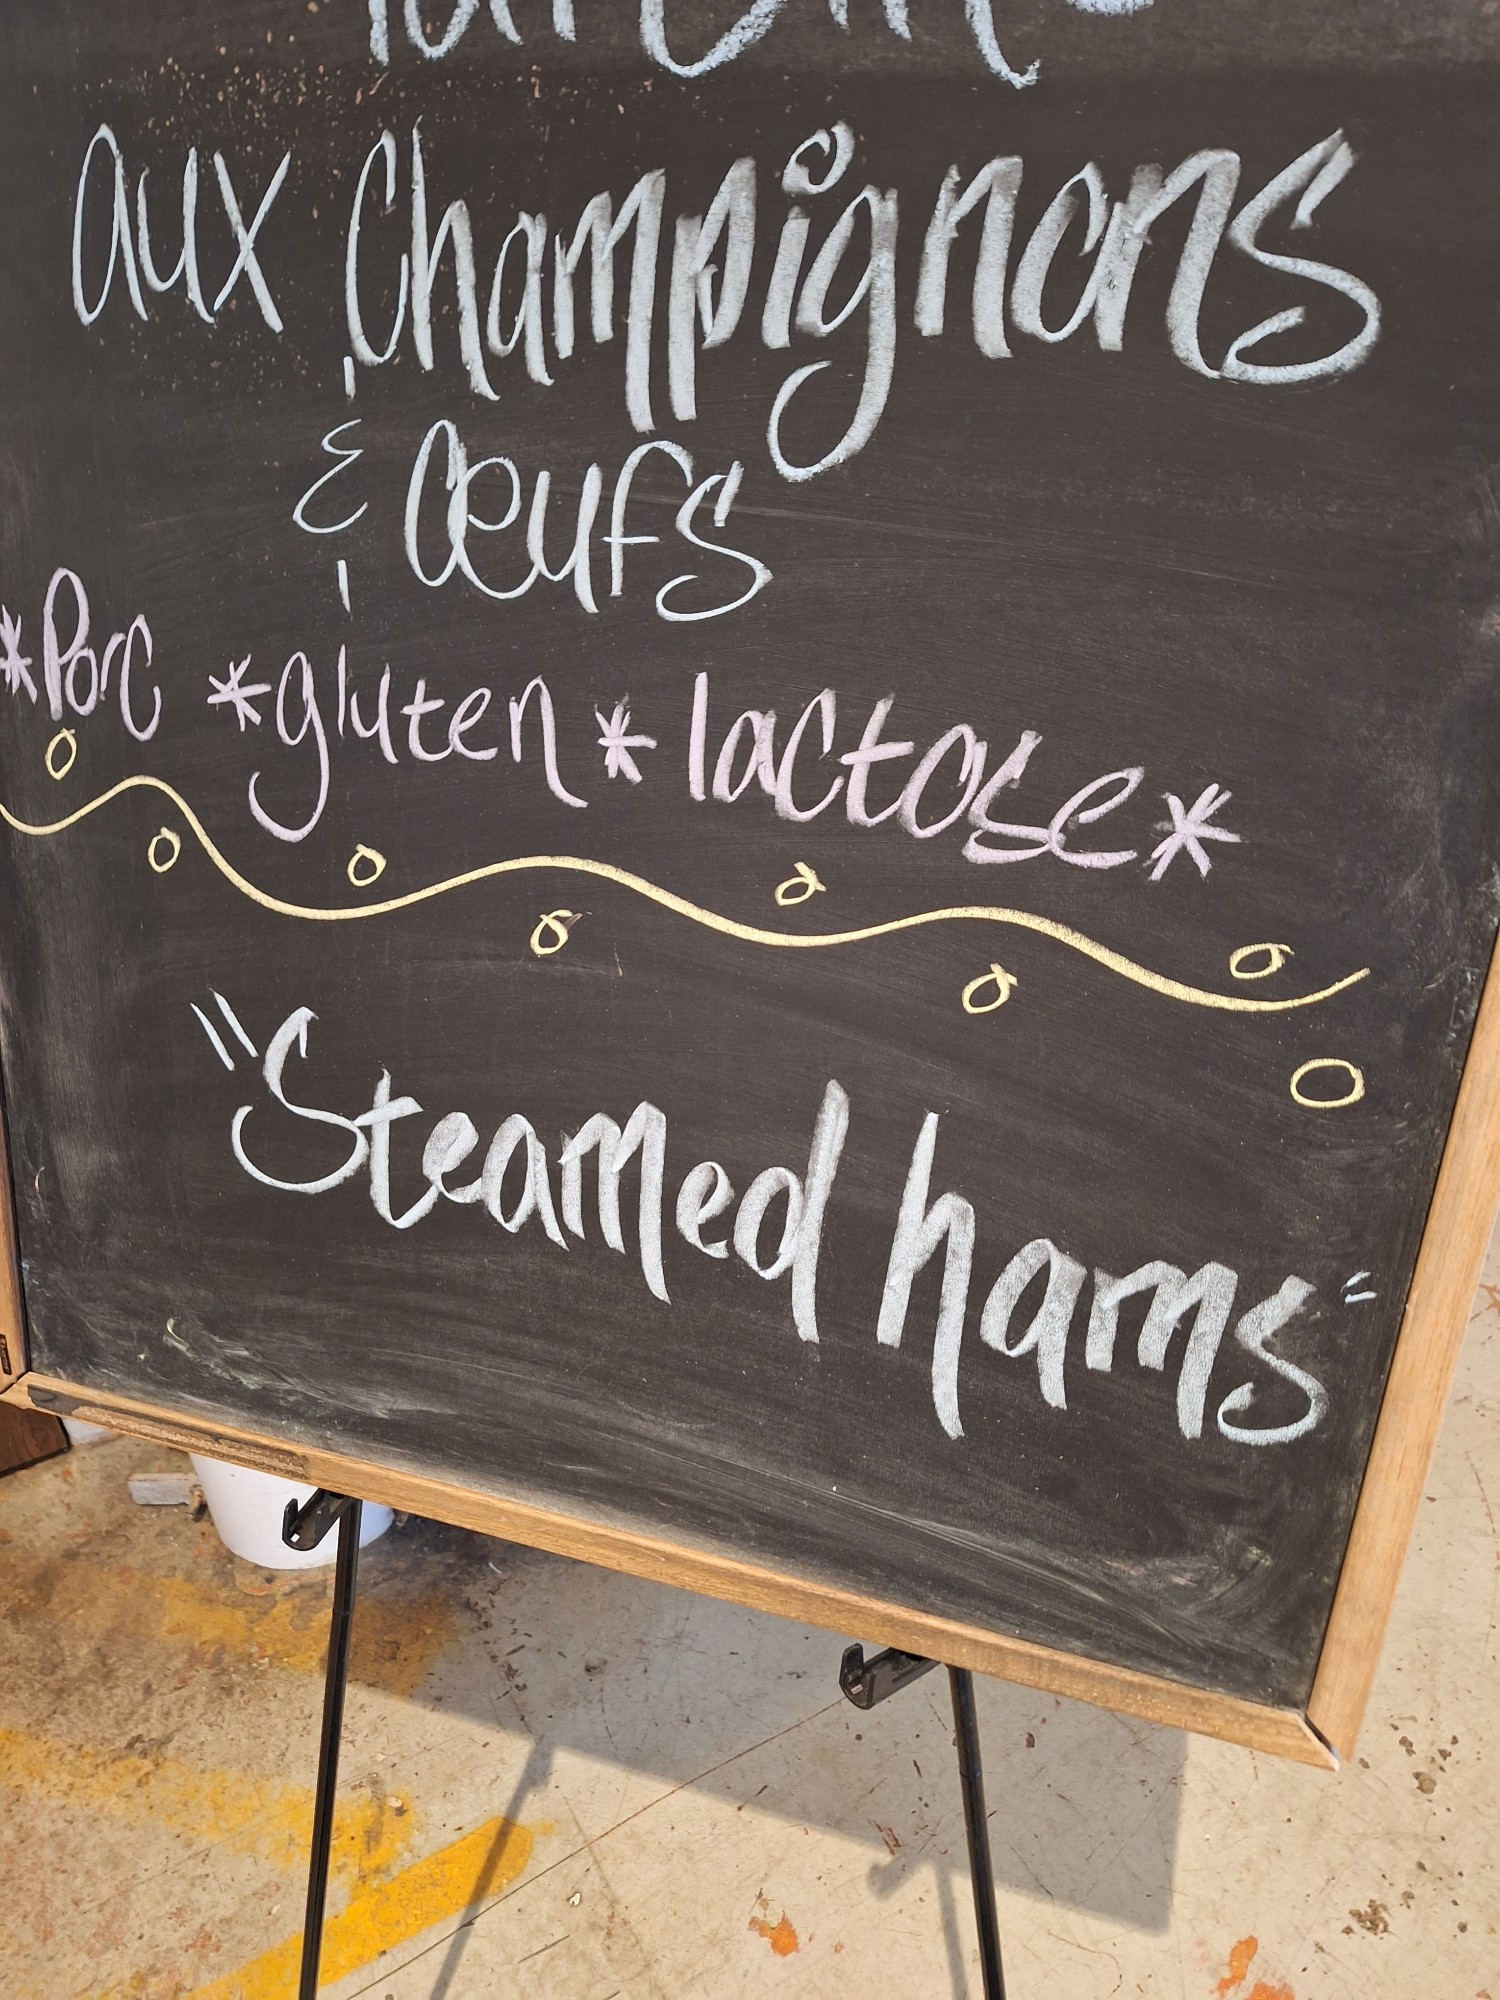 aux Champignons
& Œufs
*Porc *gluten * lactose *
"Steamed hams"